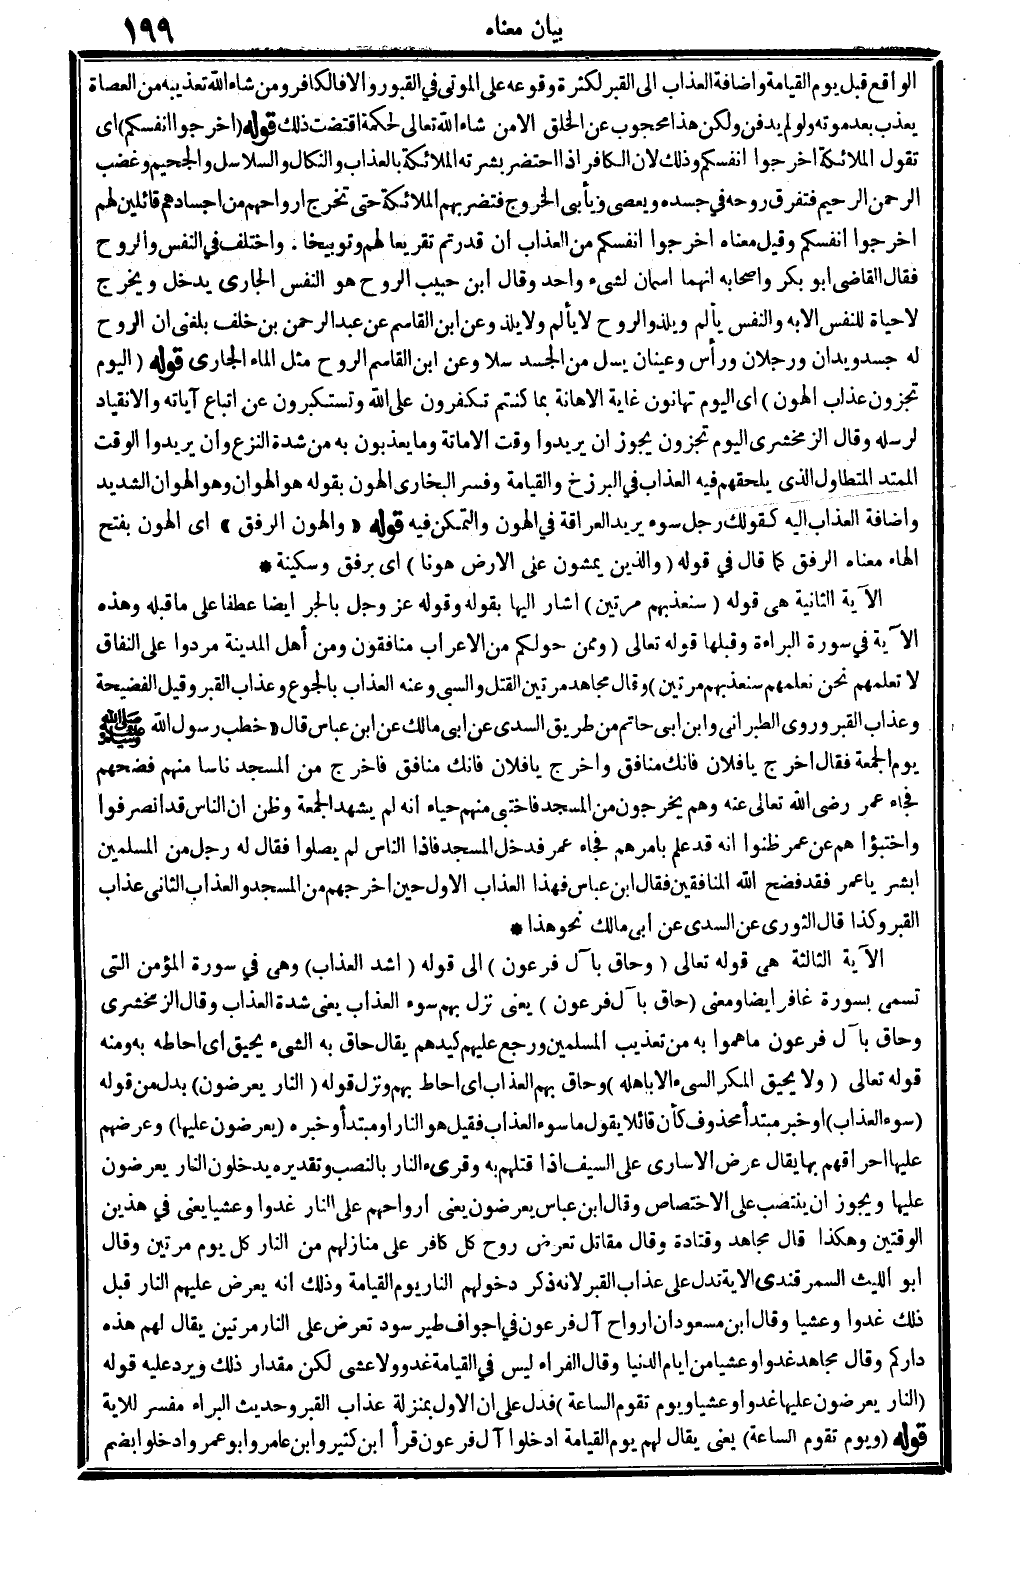 بيان معناه ١٩٩
الواقع قبل يوم القيامة واضافة العذاب الى القبر لكثرة وقوعه على الموتى في القبور والا فالكافر ومن شاء الله تعذيبه من العصاة
يعذب بعد موته ولو لم يدفن ولكن هذا محجوب عن الخلق الا من شاء الله تعالى لحكمة اقتضت ذلك قوله (اخرجوا انفسكم) اى
تقول الملائكة اخرجوا انفسكم وذلك لان الكافر اذا احتضر بشرته الملائكة بالعذاب والنكال والسلاسل والجحيم وغضب
الرحمن الرحيم فتفرق روحه في جسده ويعصى ويأبى الخروج فتضربهم الملائكة حتى تخرج ارواحهم من اجسادهم قائلين لهم
اخرجوا انفسكم وقيل معناه اخرجوا انفسكم من العذاب ان قدرتم تقريعا لهم وتوبيخا . واختلف في النفس والروح
فقال القاضى ابو بكر واصحابه انهما اسمان لشىء واحد وقال ابن حبيب الروح هو النفس الجارى يدخل ويخرج
لا حياة للنفس الا به والنفس يألم ويلذ والروح لا يألم ولا يلذ وعن ابن القاسم عن عبد الرحمن بن خلف بلغنى ان الروح
له جسد ويدان ورجلان ورأس وعينان يسل من الجسد سلا وعن ابن القاسم الروح مثل الماء الجارى قوله ( اليوم
تجزون عذاب الهون ) اى اليوم تهانون غاية الاهانة بما كنتم تكفرون على الله وتستكبرون عن اتباع آياته والانقياد
لرسله وقال الزمخشرى اليوم تجزون يجوز ان يريدوا وقت الاماتة وما يعذبون به من شدة النزع وان يريدوا الوقت
الممتد المتطاول الذى يلحقهم فيه العذاب في البرزخ والقيامة وفسر البخارى الهون بقوله هو الهوان وهو الهوان الشديد
واضافة العذاب اليه كقولك رجل سوء يريد العراقة في الهون والتمكن فيه قوله « والهون الرفق » اى الهون بفتح
الهاء معناه الرفق كما قال في قوله ( والذين يمشون على الارض هونا ) اى برفق وسكينة *
الآية الثانية هى قوله ( سنعذبهم مرتين ) اشار اليها بقوله وقوله عز وجل بالجر ايضا عطفا على ما قبله وهذه
الآية في سورة البراءة وقبلها قوله تعالى ( وممن حولكم من الاعراب منافقون ومن أهل المدينة مردوا على النفاق
لا تعلمهم نحن نعلمهم سنعذبهم مرتين ) وقال مجاهد مرتين القتل والسبى وعنه العذاب بالجوع وعذاب القبر وقيل الفضيحة
وعذاب القبر وروى الطبرانى وابن ابى حاتم من طريق السدى عن ابى مالك عن ابن عباس قال « خطب رسول الله ﷺ
يوم الجمعة فقال اخرج يا فلان فانك منافق واخرج يا فلان فانك منافق فاخرج من المسجد ناسا منهم فضحهم
فجاء عمر رضى الله تعالى عنه وهم يخرجون من المسجد فاختبى منهم حياء انه لم يشهد الجمعة وظن ان الناس قد انصرفوا
واختبؤا هم عن عمر ظنوا انه قد علم بامرهم فجاء عمر فدخل المسجد فاذا الناس لم يصلوا فقال له رجل من المسلمين
ابشر يا عمر فقد فضح الله المنافقين فقال ابن عباس فهذا العذاب الاول حين اخرجهم من المسجد والعذاب الثانى عذاب
القبر وكذا قال الثورى عن السدى عن ابى مالك نحو هذا *
الآية الثالثة هى قوله تعالى ( وحاق بآل فرعون ) الى قوله ( اشد العذاب) وهى في سورة المؤمن التى
تسمى بسورة غافر ايضا ومعنى (حاق بآل فرعون ) يعنى نزل بهم سوء العذاب يعنى شدة العذاب وقال الزمخشرى
وحاق بآل فرعون ما هموا به من تعذيب المسلمين ورجع عليهم كيدهم يقال حاق به الشىء يحيق اى احاط به ومنه
قوله تعالى ( ولا يحيق المكر السىء الا باهله ) وحاق بهم العذاب اى احاط بهم ونزل قوله ( النار يعرضون) بدل من قوله
(سوء العذاب) او خبر مبتدأ محذوف كأن قائلا يقول ما سوء العذاب فقيل هو النار او مبتدأ وخبره (يعرضون عليها) وعرضهم
عليها احراقهم بها يقال عرض الاسارى على السيف اذا قتلهم به وقرىء النار بالنصب وتقديره يدخلون النار يعرضون
عليها ويجوز ان ينتصب على الاختصاص وقال ابن عباس يعرضون يعنى ارواحهم على النار غدوا وعشيا يعنى في هذين
الوقتين وهكذا قال مجاهد وقتادة وقال مقاتل تعرض روح كل كافر على منازلهم من النار كل يوم مرتين وقال
ابو الليث السمرقندى الاية تدل على عذاب القبر لانه ذكر دخولهم النار يوم القيامة وذلك انه يعرض عليهم النار قبل
ذلك غدوا وعشيا وقال ابن مسعود ان ارواح آل فرعون في اجواف طير سود تعرض على النار مرتين يقال لهم هذه
داركم وقال مجاهد غدوا وعشيا من ايام الدنيا وقال الفراء ليس في القيامة غدو ولا عشى لكن مقدار ذلك ويرد عليه قوله
(النار يعرضون عليها غدوا وعشيا ويوم تقوم الساعة ) فدل على ان الاول بمنزلة عذاب القبر وحديث البراء مفسر للاية
قوله (ويوم تقوم الساعة) يعنى يقال لهم يوم القيامة ادخلوا آل فرعون قرأ ابن كثير وابن عامر وابو عمرو ادخلوا بضم